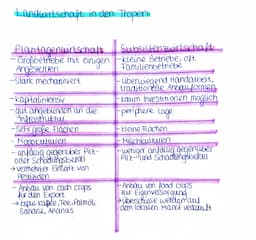 Landwirtschaft in den Tropen
Plantagenwirtschaft
- Großbetriebe mit einigen
Angestellten
- stark mechanisiert
- kapitalintensiv
- gut angebunden an die
Infrastruktur
- sehr große Flächen
- Monokulturen
- anfällig gegenüber Pilz-
oder Schädlingsbefall
→ vermehrter Einsatz von
Pestiziden
- Anbau von cash crops
für den Export
→ Kaffee, Tee, Palmöl,
Banane, Ananas
Subsistenzwirtschaft
- kleine Betriebe, oft
Familienbetriebe
- überwiegend Handarbeit,
traditionelle Anbauformen
- kaum Investitionen möglich
- periphere Lage
- kleine Flächen
- Mischkulturen
- weniger anfällig gegenüber
Pilz- und Schädlingsbefall
- Anbau von food crops
zur Eigenversorgung
→ Überschüsse werden auf
dem lokalen Markt verkauft